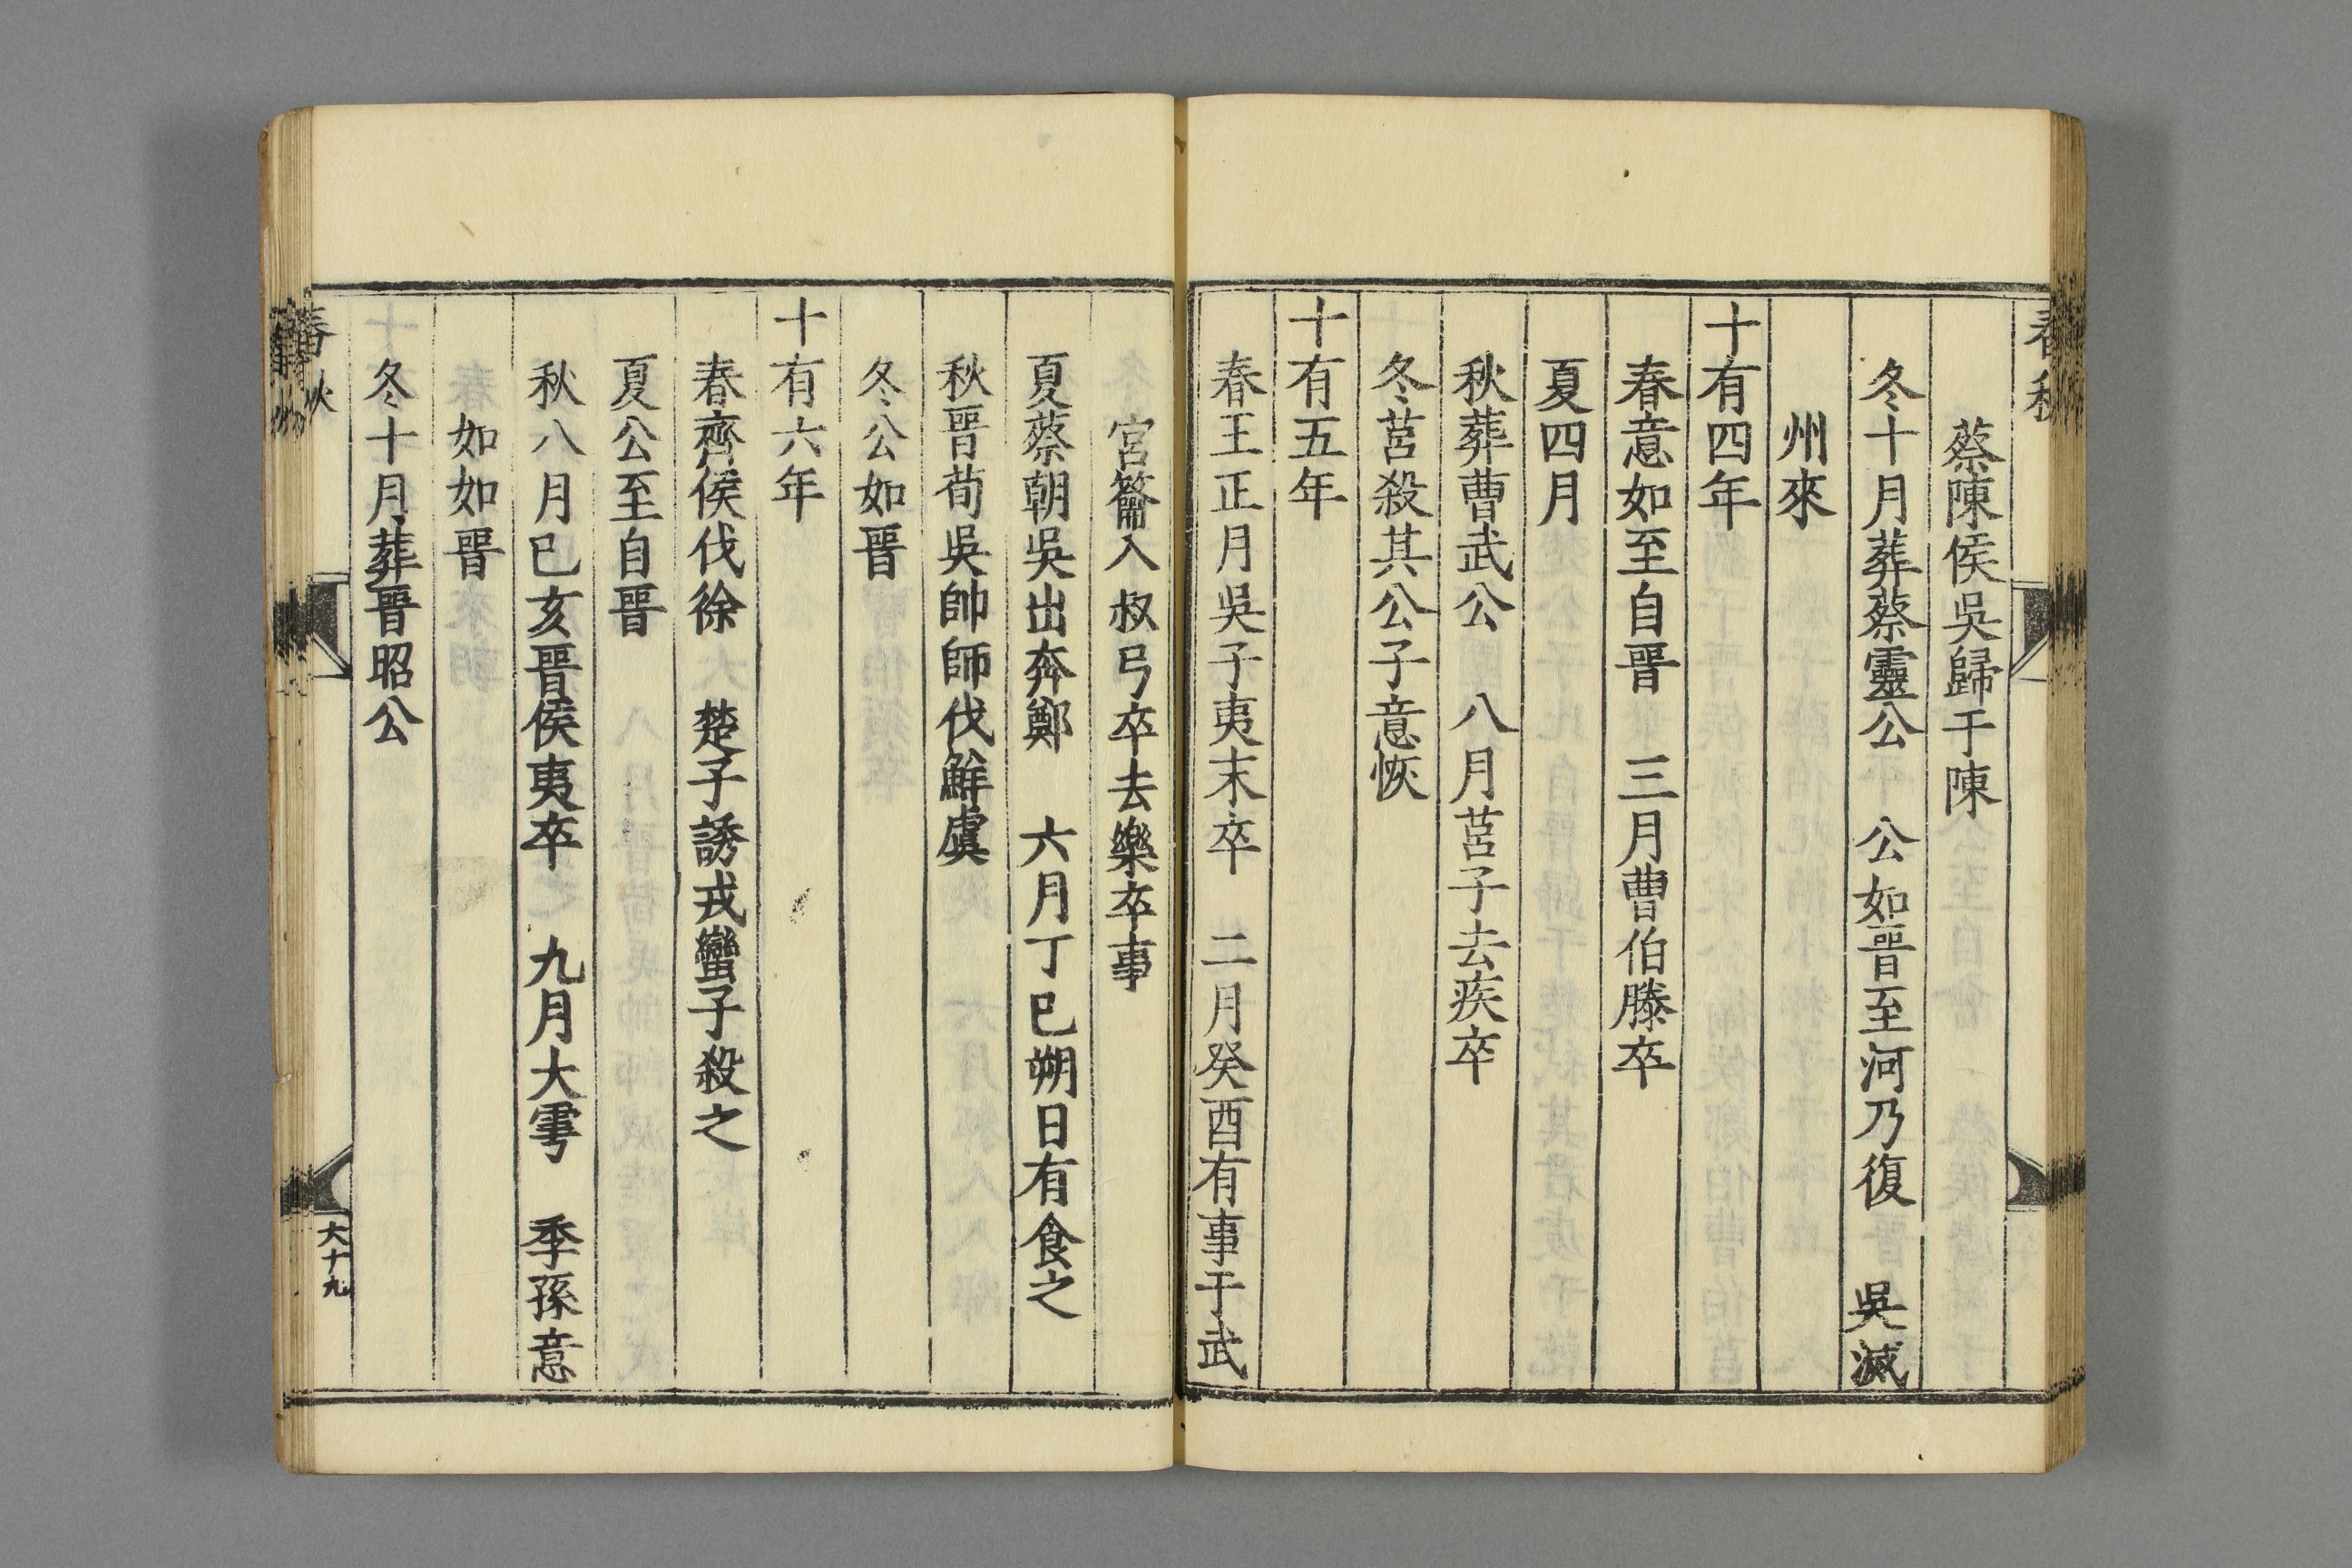 春秋
蔡陳侯吳歸于陳
冬十月葬蔡靈公　公如晉至河乃復　吳滅
州來
十有四年
春意如至自晉　三月曹伯滕卒
夏四月
秋葬曹武公　八月莒子去疾卒
冬莒殺其公子意恢
十有五年
春王正月吳子夷末卒　二月癸酉有事于武
宮籥入叔弓卒去樂卒事
夏蔡朝吳出奔鄭　六月丁巳朔日有食之
秋晉荀吳帥師伐鮮虞
冬公如晉
十有六年
春齊侯伐徐　楚子誘戎蠻子殺之
夏公至自晉
秋八月己亥晉侯夷卒　九月大雩　季孫意
如如晉
冬十月葬晉昭公
春秋
大十九